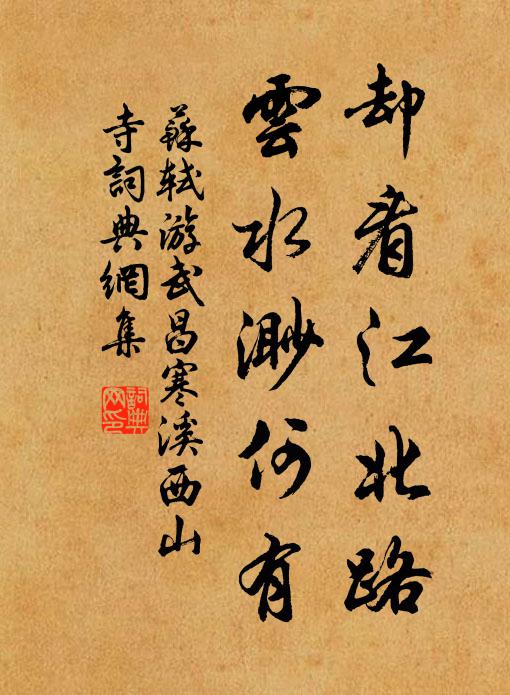 却看江北路
雲水渺何有
蘇軾游武昌寒溪西山
寺詞典網集
詞典網印